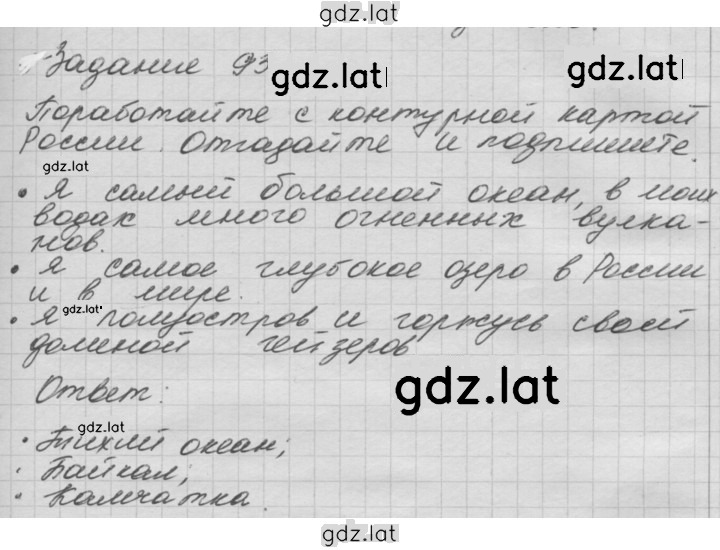 gdz.lat
Задание 93
gdz.lat
gdz.lat
Поработайте с контурной картой
России. Отгадайте и подпишите.
gdz.lat
• Я самый большой океан, в моих
водах много огненных вулка-
нов.
• Я самое глубокое озеро в России
и в мире.
gdz.lat
• Я полуостров и горжусь своей
долиной гейзеров
Ответ:
gdz.lat
gdz.lat
• Тихий океан;
• Байкал;
• Камчатка.
gdz.lat